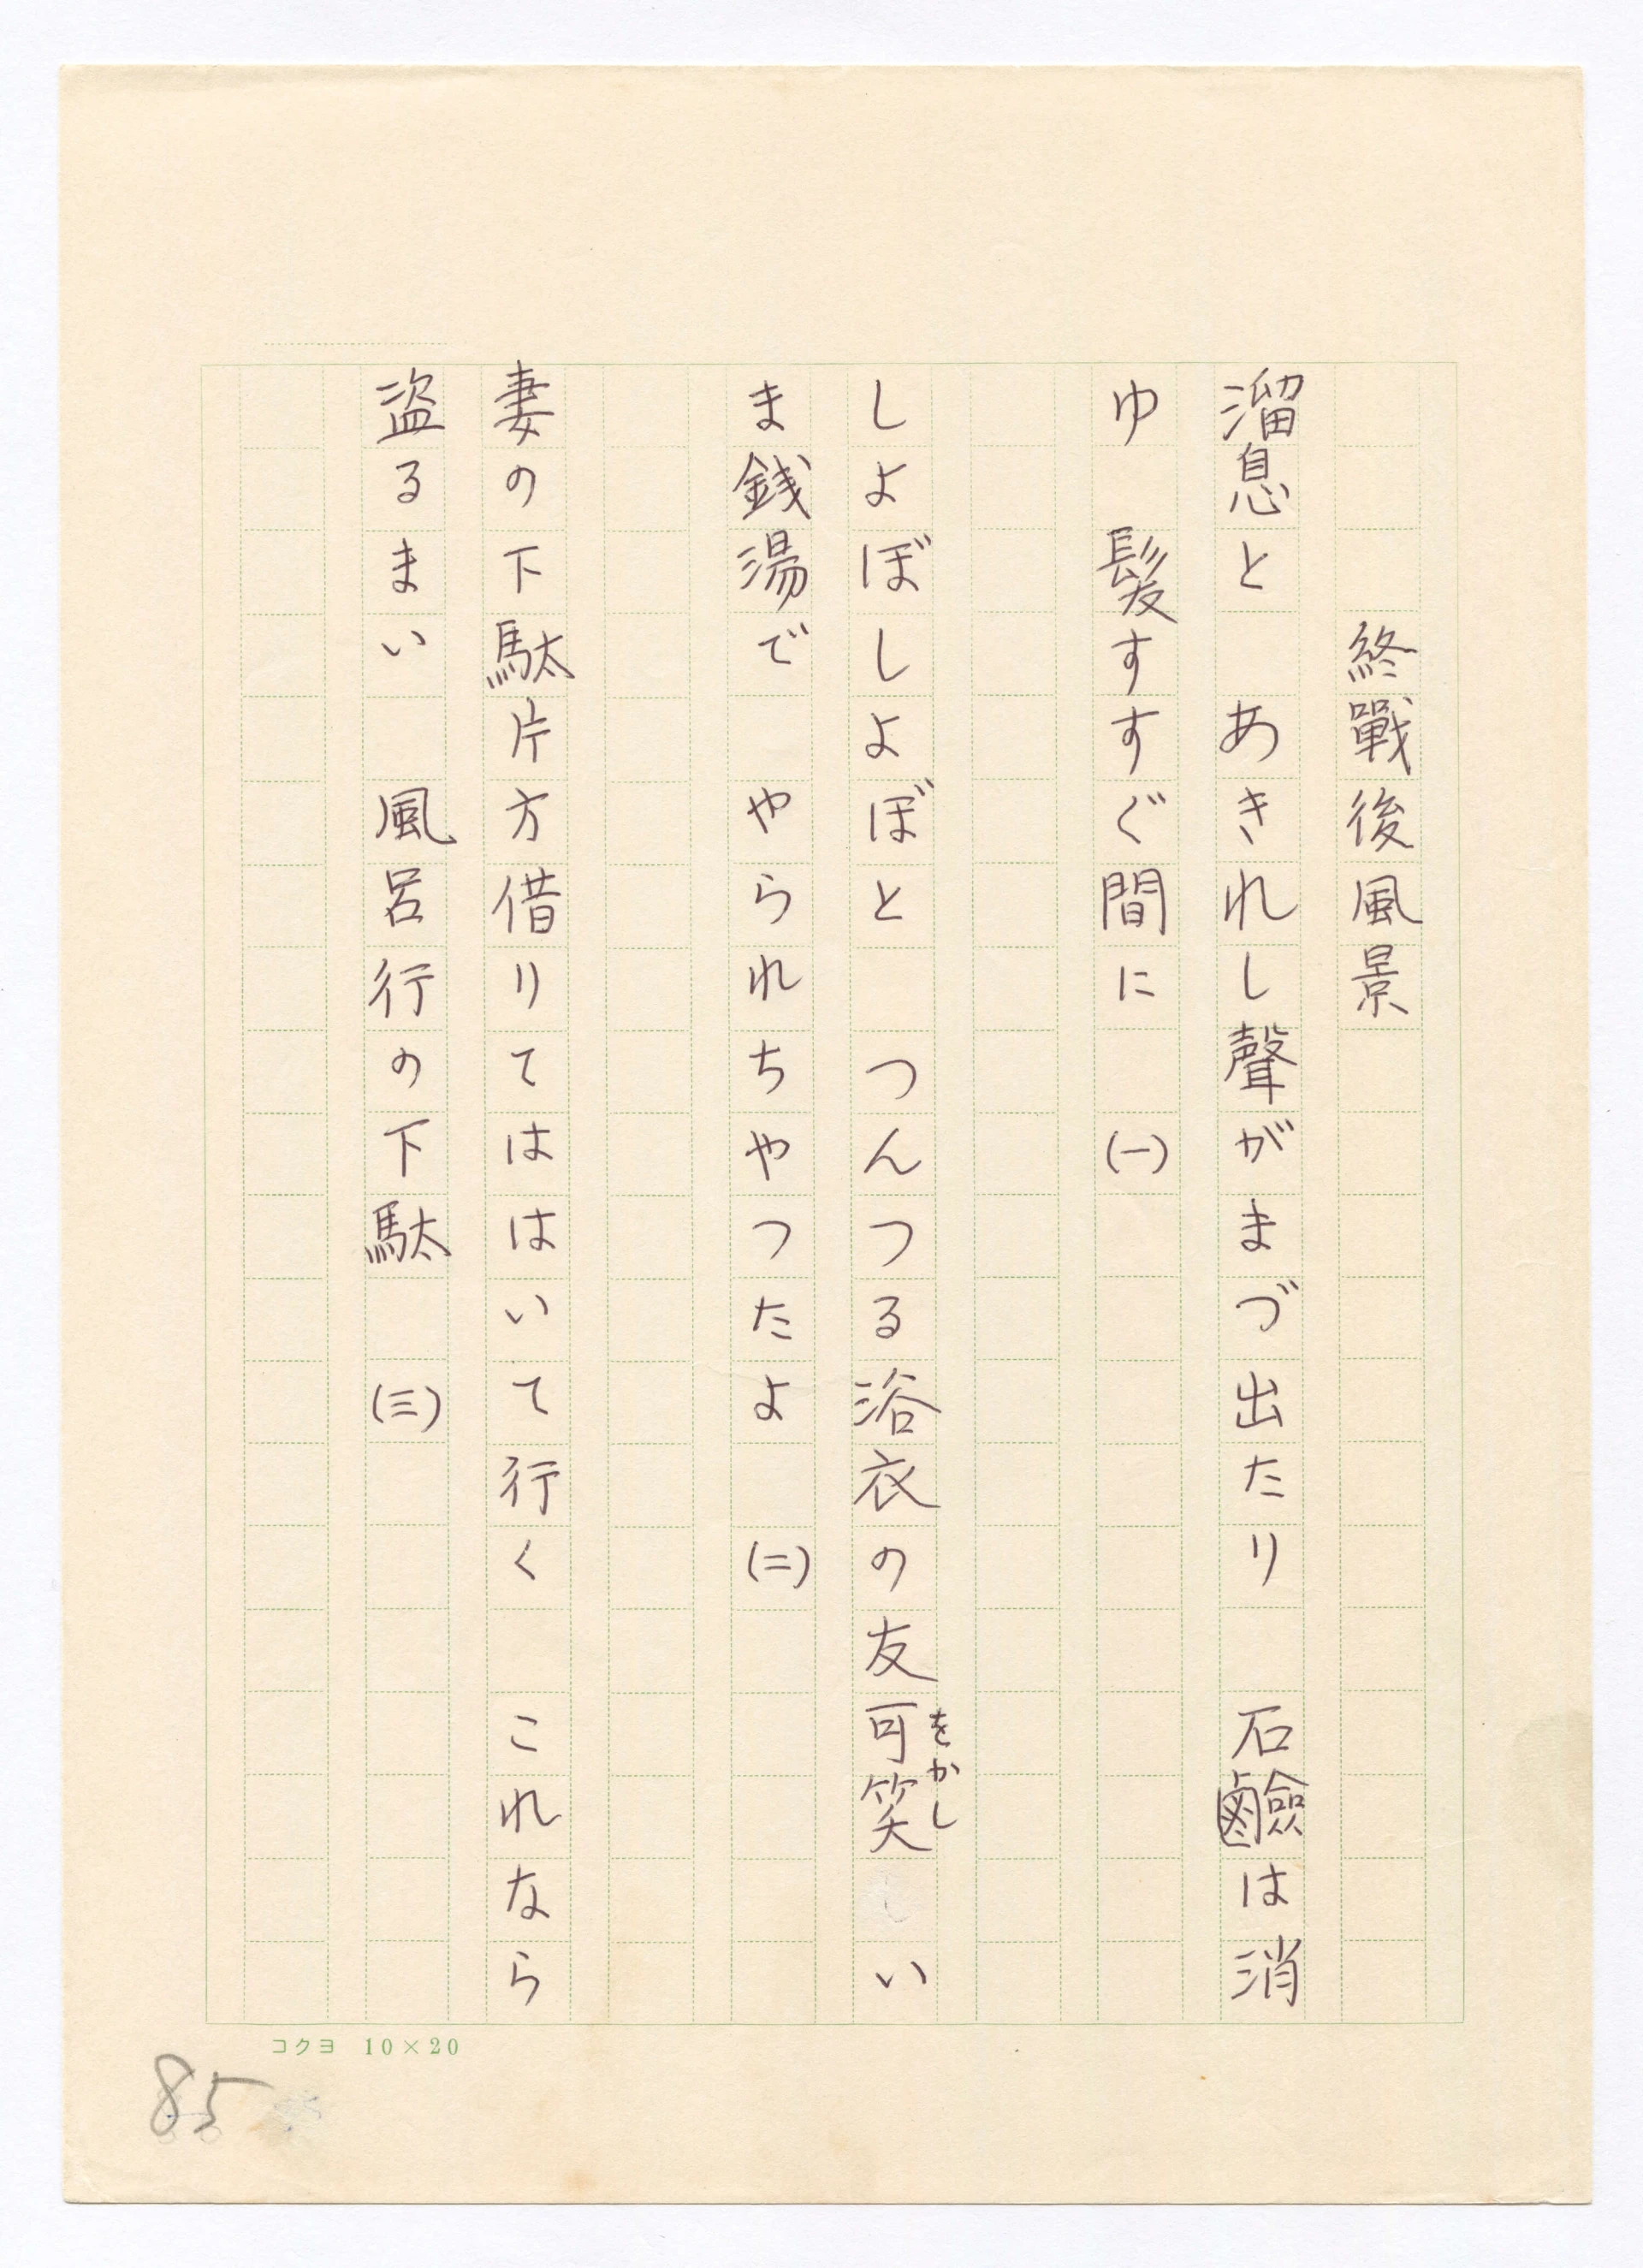 終戰後風景
溜息と　あきれし聲がまづ出たり　石鹼は消
ゆ　髪すすぐ間に　(一)
しよぼしよぼと　つんつる浴衣の友可笑い
をかし
ま銭湯で　やられちやつたよ　(二)
妻の下駄片方借りてははいて行く　これなら
盗るまい　風呂行の下駄　(三)
コクヨ 10×20
85